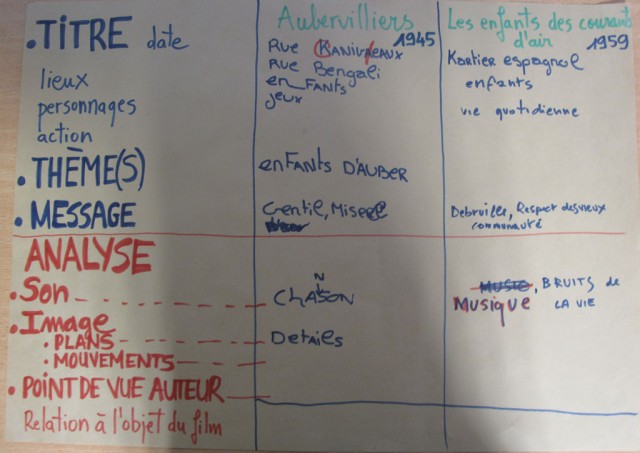 .TITRE date
lieux
personnages
action
.THÈME(S)
.MESSAGE
ANALYSE
.Son
.Image
.PLANS
.MOUVEMENTS
.POINT DE VUE AUTEUR
Relation à l'objet du film
Aubervilliers
1945
Rue KANIVEAUX
Rue Bengali
enFANTS
jeux
enFANTS D'AUBER
Gentil, Misere
ChANSON
Details
Les enfants des courants
d'air
1959
Kartier espagnol
enfants
vie quotidienne
Debrville, Respect des vieux
communauté
MUSIC, BRUITS de
Musique LA VIE